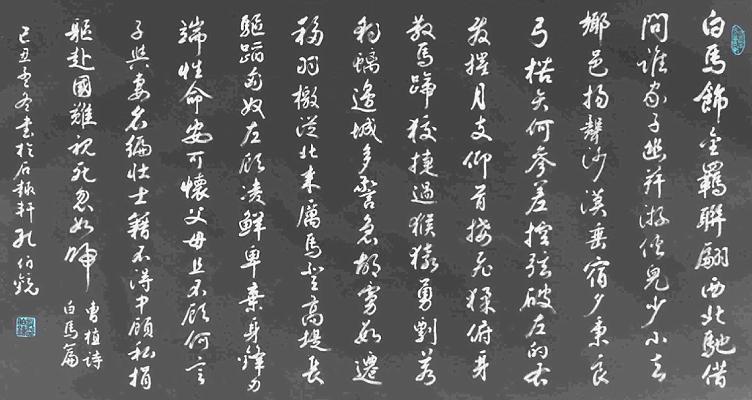 白馬飾金羈聯翩西北馳借
問誰家子幽并游俠兒少小去
鄉邑揚聲沙漠垂宿夕秉良
弓楛矢何參差控弦破左的右
發摧月支仰首接飛猱俯身
散馬蹄狡捷過猴猿勇剽若
豹螭邊城多警急胡虜數遷
移羽檄從北來厲馬登高堤長
驅蹈匈奴左顧凌鮮卑棄身鋒刃
端性命安可懷父母且不顧何言
子與妻名編壯士籍不得中顧私捐
軀赴國難視死忽如歸
曹植詩
白馬篇
己丑冬書於石軒孔伯